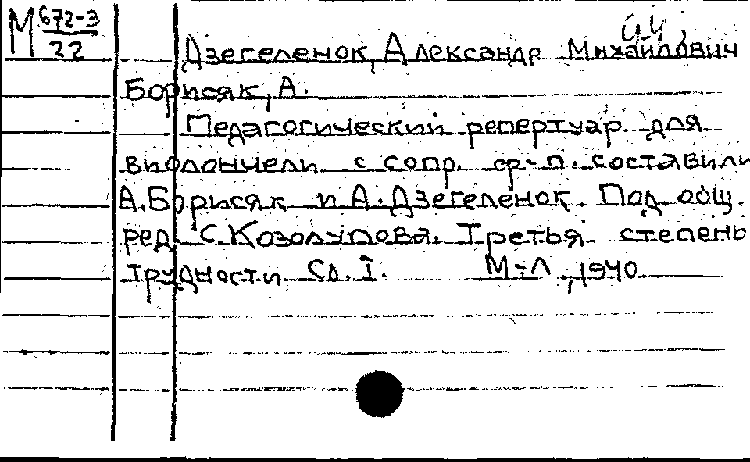 М 672-3
22
Дзегеленок, Александр Михайлович
Борисяк, А.
Педагогический репертуар для
виолончели с сопр. ф-п. составили
А. Борисяк и А. Дзегеленок. Под общ.
ред. С. Козолупова. Третья степень
трудности Сб. I. М-Л, 1940